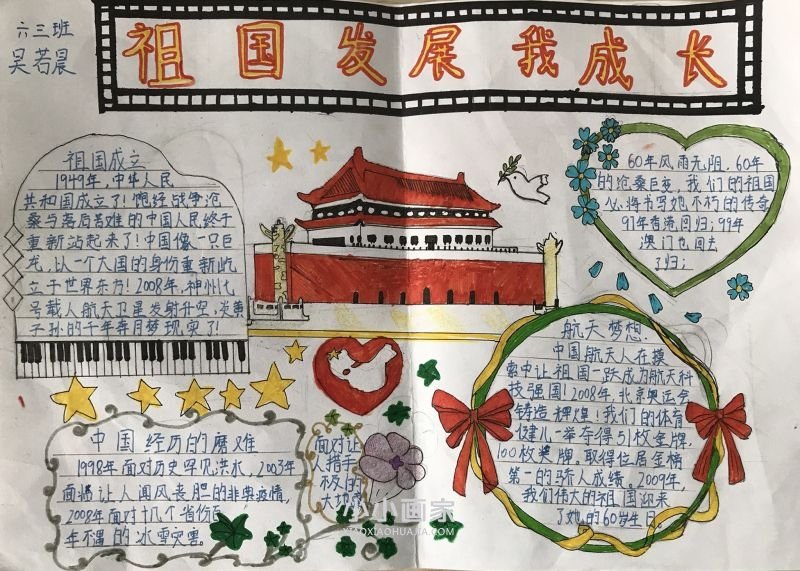 六三班
吴若晨
祖国发展我成长
祖国成立
1949年,中华人民
共和国成立了!饱经战争沧
桑与落后苦难的中国人民终于
重新站起来了!中国像一只巨
龙,以一个大国的身份重新屹
立于世界东方!2008年,神州七
号载人航天卫星发射升空,炎黄
子孙的千年奔月梦现实了!
60年风雨无阻,60年
的沧桑巨变,我们的祖国
必将书写她不朽的传奇
97年香港回归;99年
澳门也回去
了归;
航天梦想
中国航天人在摸
索中让祖国一跃成为航天科
技强国!2008年,北京奥运会
铸造辉煌!我们的体育
健儿一举夺得51枚金牌,
100枚奖牌。取得位居金榜
第一的骄人成绩。2009年,
我们伟大的祖国迎来
了她的60岁生日。
中国经历的磨难
1998年面对历史罕见洪水,2003年
面临让人闻风丧胆的非典疫情,
2008年面对十几个省份百
年不遇的冰雪灾害。
面对让
人措手
不及的
大地震
小小画家
XIAOXIAOHUAJIA.COM